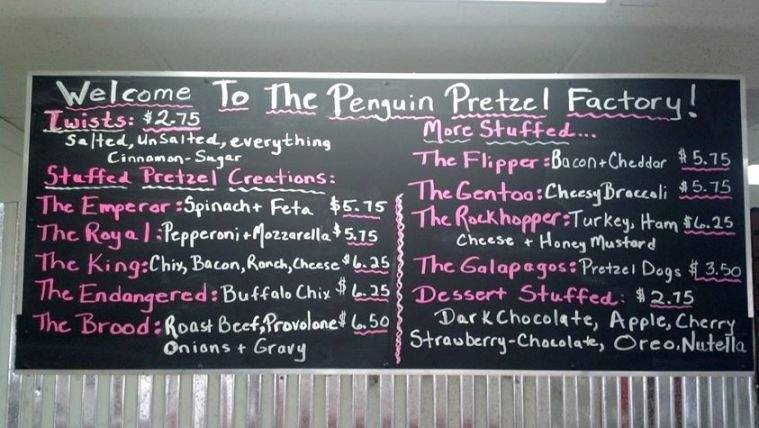 Welcome To The Penguin Pretzel Factory!
Twists: $2.75
Salted, UnSalted, everything
Cinnamon-Sugar
Stuffed Pretzel Creations:
The Emperor: Spinach + Feta $5.75
The Royal: Pepperoni + Mozzarella $5.75
The King: Chix, Bacon, Ranch, Cheese $6.25
The Endangered: Buffalo Chix $6.25
The Brood: Roast Beef, Provolone $6.50
Onions + Gravy
More Stuffed...
The Flipper: Bacon + Cheddar $5.75
The Gentoo: Cheesy Broccoli $5.75
The Rockhopper: Turkey, Ham $6.25
Cheese + Honey Mustard
The Galapagos: Pretzel Dogs $3.50
Dessert Stuffed: $2.75
Dark Chocolate, Apple, Cherry
Strawberry-Chocolate, Oreo, Nutella